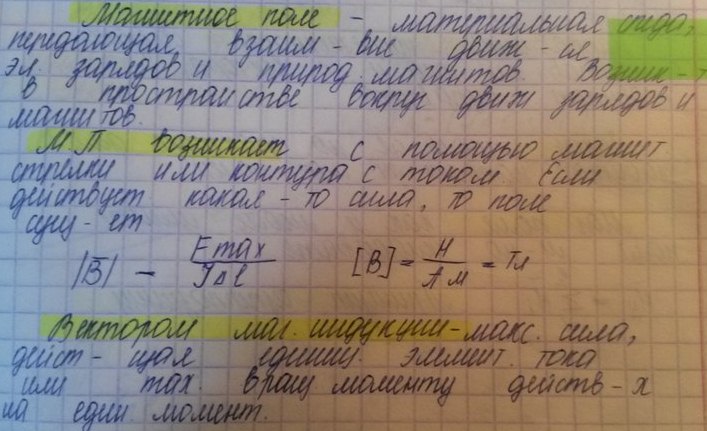 Магнитное поле - материальная среда,
передающая взаим-вие движ-ся
эл. зарядов и природ. магнитов. Возник-т
в пространстве вокруг движ зарядов и
магнитов.
М.П возникает с помощью магнит
стрелки или контура с током. Если
действует какая-то сила, то поле
сущ-ет
|B̅| - Fmax / IΔl [B] = Н / А м = Тл
Вектором маг. индукции - макс. сила,
дейст-щая единиц. элемент. тока
или max. вращ моменту действ-х
на един. момент.